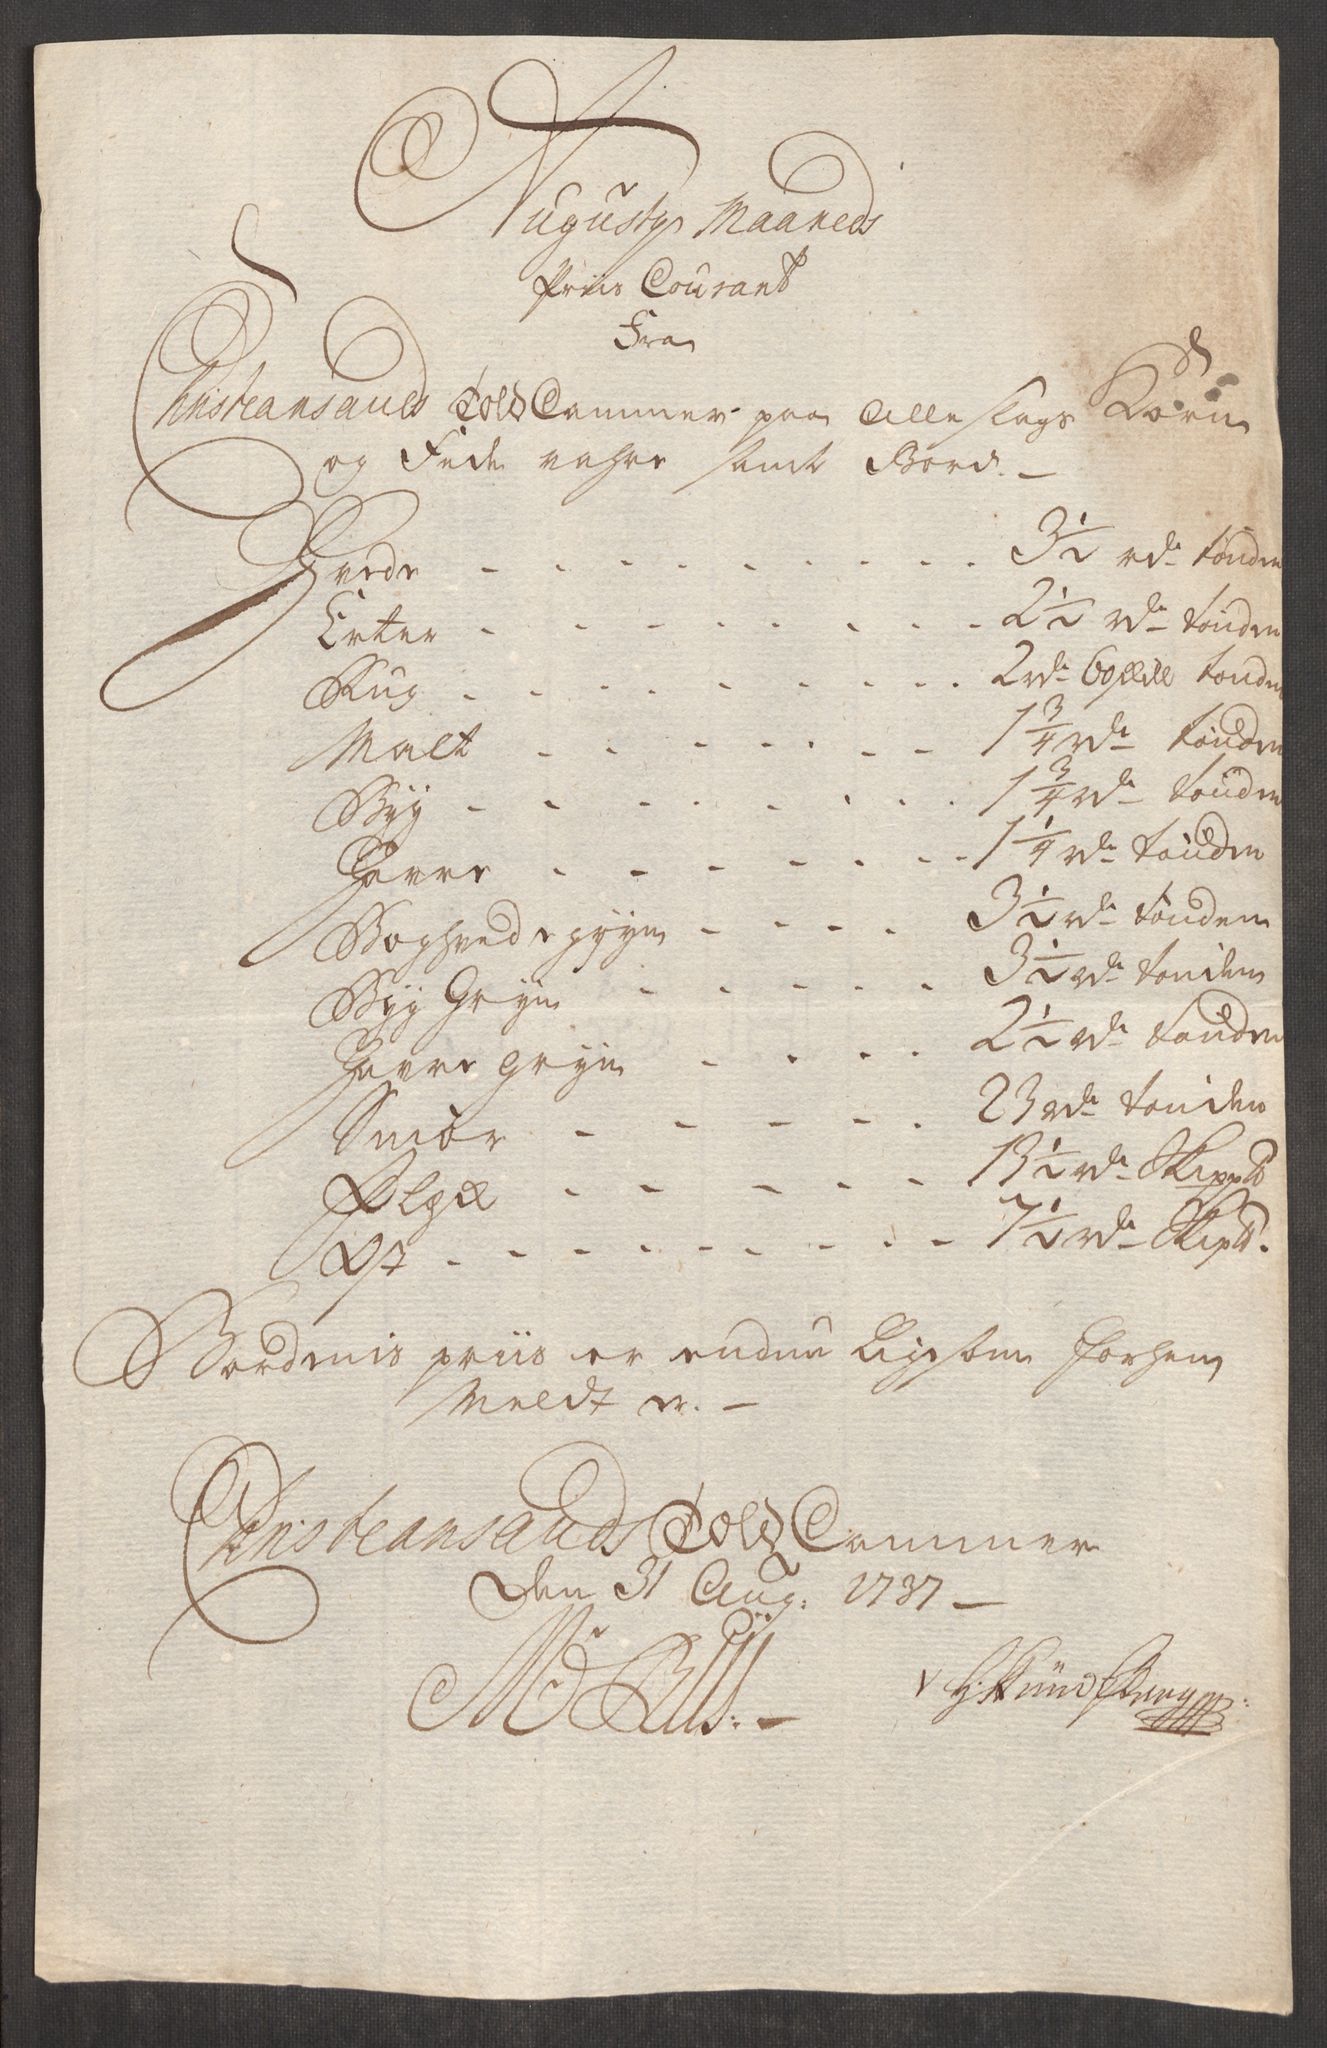 Augusty Maaneds
Priis Courant
Fra
Christiansands Told Cammer paa alle slags Korn
og Fede vahre samt Bord. —
Hvede - - - - - - - - - 3 1/2 rdr tønden
Erter - - - - - - - - - 2 1/2 rdr tønden
Rug - - - - - - - - - 2 rdr 60 tønden
Malt - - - - - - - 1 3/4 rdr tønden
Byg - - - - - - - - 1 3/4 rdr tønden
Havre - - - - - - - 1 1/4 rdr tønden
Boghvede gryn - - - - 3 1/2 rdr tønden
Byg Gryn - - - - - 3 1/2 rdr tønden
Havre gryn - - - - 2 1/2 rdr tønden
Smör - - - - - 23 rdr tønden
Flesk - - - - - 13 1/2 rdr Skippd
Ost - - - - - - - - - 7 1/2 rdr Skipd.
Bordenis priis er endnu Ligesom forhen
Meldt er. —
Christiansands Told Cammer
Den 31 Aug: 1737 —